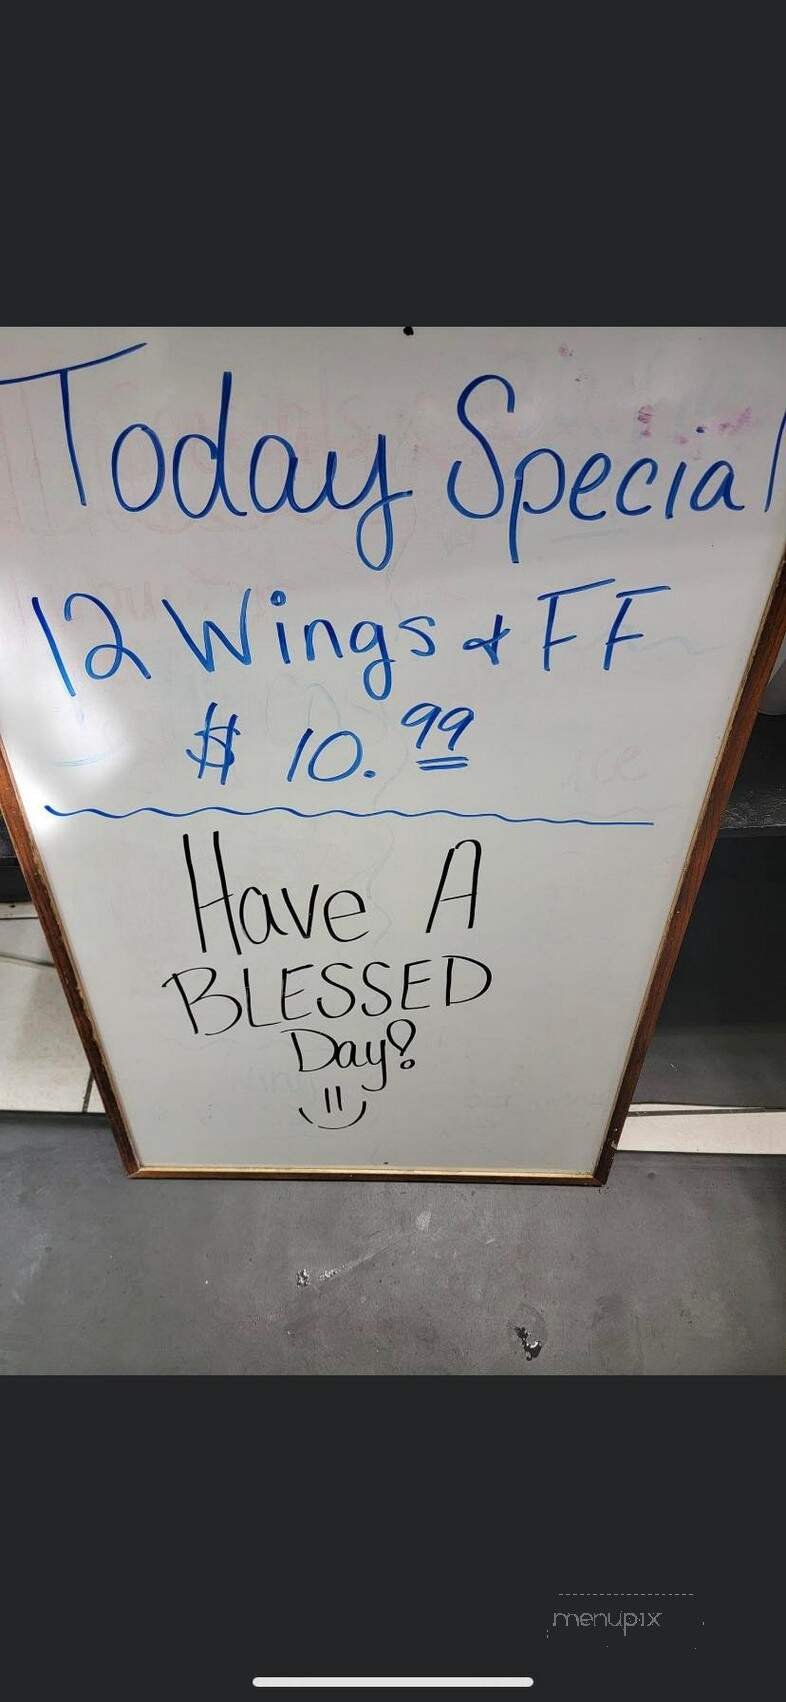 Today Special
12 Wings & FF
$ 10.99
Have A
BLESSED
Day!
menupix